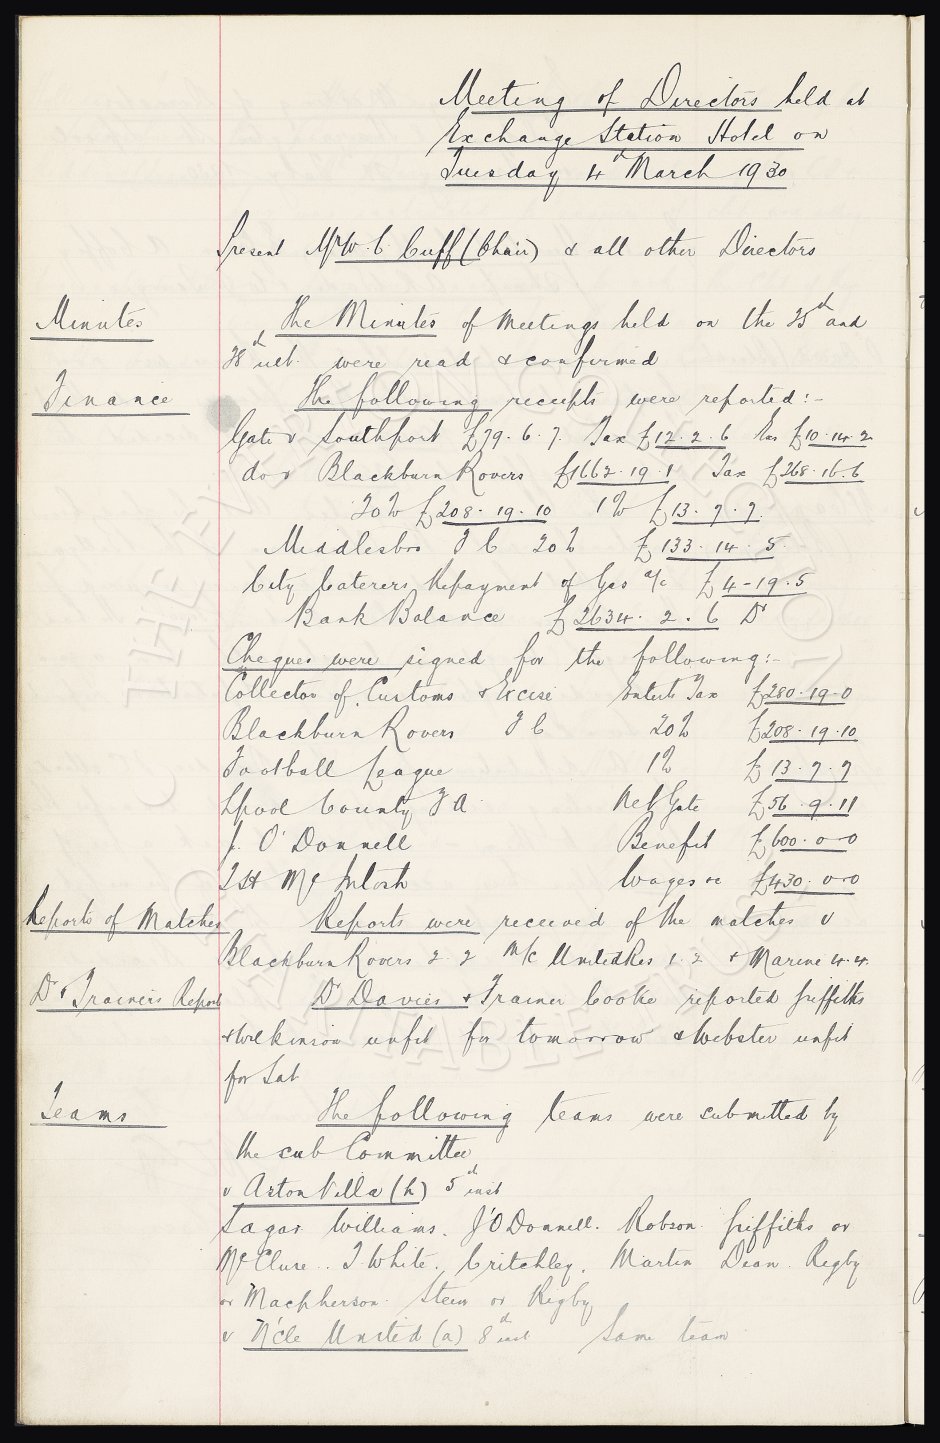 Meeting of Directors held at
Exchange Station Hotel on
Tuesday 4th March 1930
Present Mr W. C. Cuff (Chair) & all other Directors
Minutes The Minutes of Meetings held on the 25th and
28th ult. were read & confirmed
Finance The following receipts were reported:-
Gate v Southport £79. 6. 7. Tax £12. 2. 6 Ins £10. 14. 2
do v Blackburn Rovers £1662. 19. 1 Tax £268. 16. 6
20% £208. 19. 10 1% £13. 7. 7.
Middlesbro F C 20% £133. 14. 5
City Caterers Repayment of Gas a/c £4-19.5
Bank Balance £2634. 2. 6 Dr
Cheques were signed for the following:-
Collector of Customs & Excise Entert Tax £280-19-0
Blackburn Rovers F C 20% £208. 19. 10
Football League 1% £13. 7. 7
Lpool County F A Net Gate £56. 9. 11
J. O'Donnell Benefit £600. 0-0
T H McIntosh Wages &c £430. 0-0
Reports of Matches Reports were received of the matches v
Blackburn Rovers 2. 2 M/c United Res 1. 2 & Marine 4-4.
Dr & Trainer's Report Dr Davies & Trainer Cooke reported Griffiths
& Wilkinson unfit for tomorrow & Webster unfit
for Sat
Teams The following teams were submitted by
the sub Committee
v Aston Villa (h) 5th inst
Sagar Williams. J'ODonnell. Robson. Griffiths or
McClure.. T. White. Critchley. Martin Dean. Rigby
or Macpherson. Stein or Rigby
v N'cle United (a) 8th inst Same team